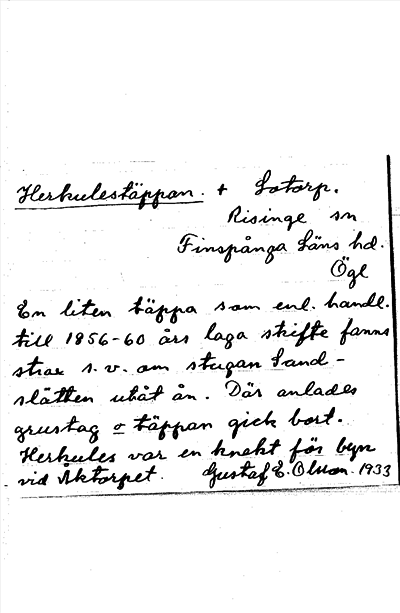 Herkulestäppan. + Lotorp.
Risinge sn
Finspånga Läns hd.
Ögl
En liten täppa som enl. handl.
till 1856-60 års laga skifte fanns
strax s.v. om stugan Sand-
slätten utåt ån. Där anlades
grustag o täppan gick bort.
Herkules var en knekt för byn
vid Åktorpet. Gustaf E. Olsson. 1933